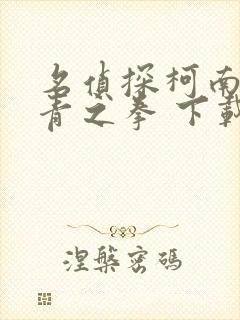 名偵探柯南
青之拳 下載
涅槃密碼